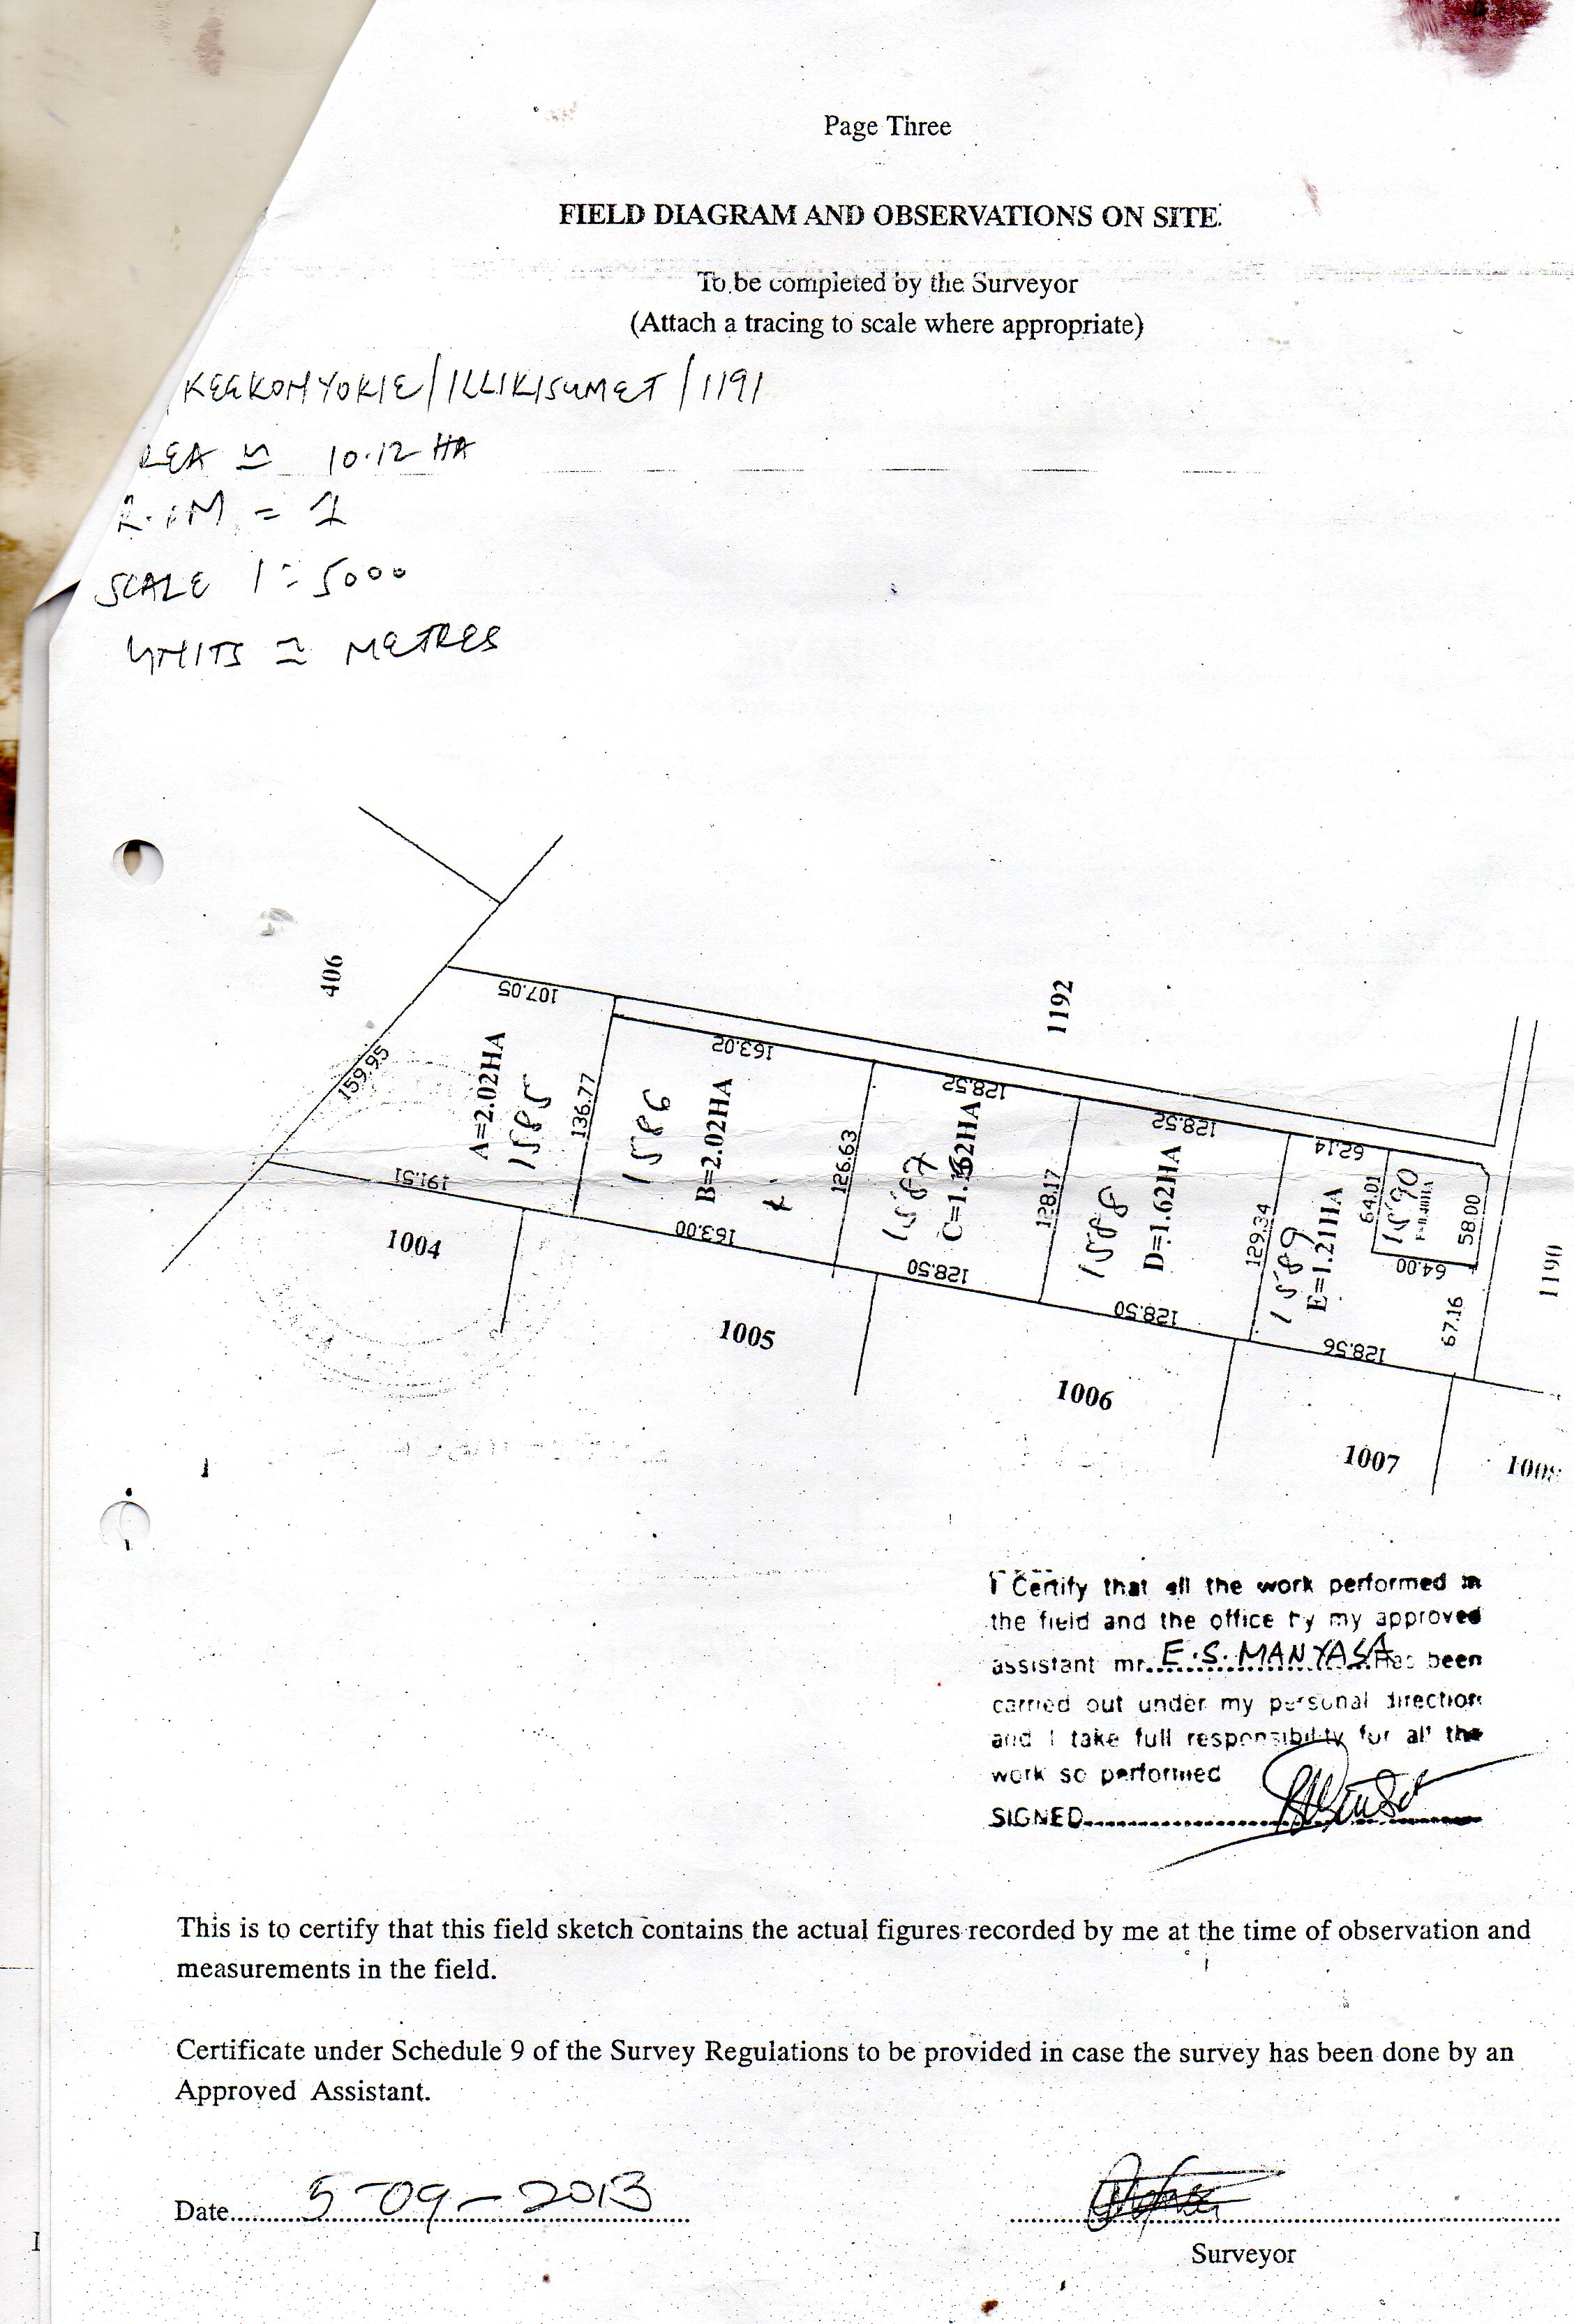 Page Three
FIELD DIAGRAM AND OBSERVATIONS ON SITE
To be completed by the Surveyor
(Attach a tracing to scale where appropriate)
/KEEKONYOKIE/ILLIKISUMET/1191
REA ≃ 10.12 HA
R.I.M = 1
SCALE 1:5000
UNITS ≃ METRES
406
107.05
1192
159.95
A=2.02HA
1585
136.77
163.02
1586
B=2.02HA
126.63
128.52
1587
128.17
128.52
1588
D=1.62HA
129.34
62.14
1589
E=1.21HA
64.01
1590
58.00
64.00
67.16
191.51
163.00
128.50
128.50
128.56
1190
1004
1005
1006
1007
I Certify that all the work performed in
the field and the office by my approved
assistant mr. E.S. MANYASA Has been
carried out under my personal direction
and I take full responsibility for all the
work so performed
SIGNED
This is to certify that this field sketch contains the actual figures recorded by me at the time of observation and
measurements in the field.
Certificate under Schedule 9 of the Survey Regulations to be provided in case the survey has been done by an
Approved Assistant.
Date 5-09-2013
Surveyor